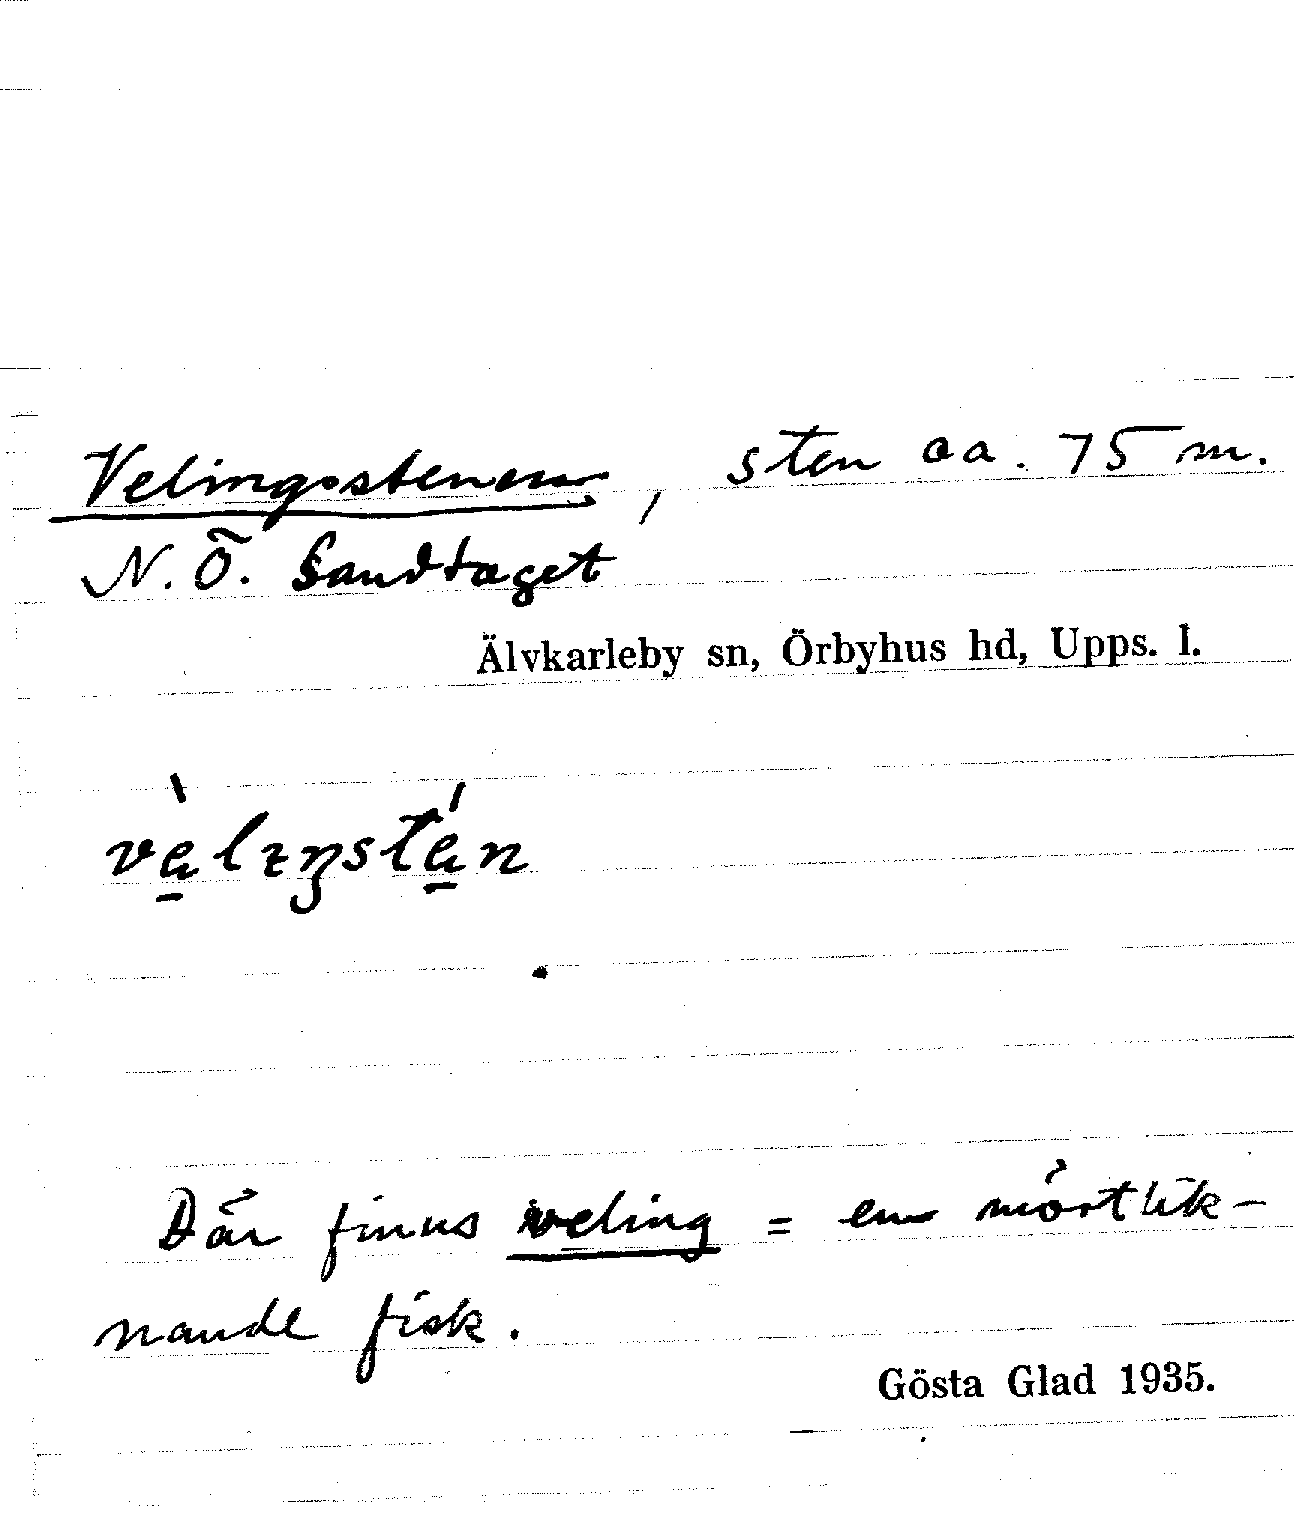 Velingsstenen, sten ca. 75 m.
N.Ö. Sandtaget
Älvkarleby sn, Örbyhus hd, Upps. l.
Där finns veling = en mörtlik-
nande fisk.
Gösta Glad 1935.